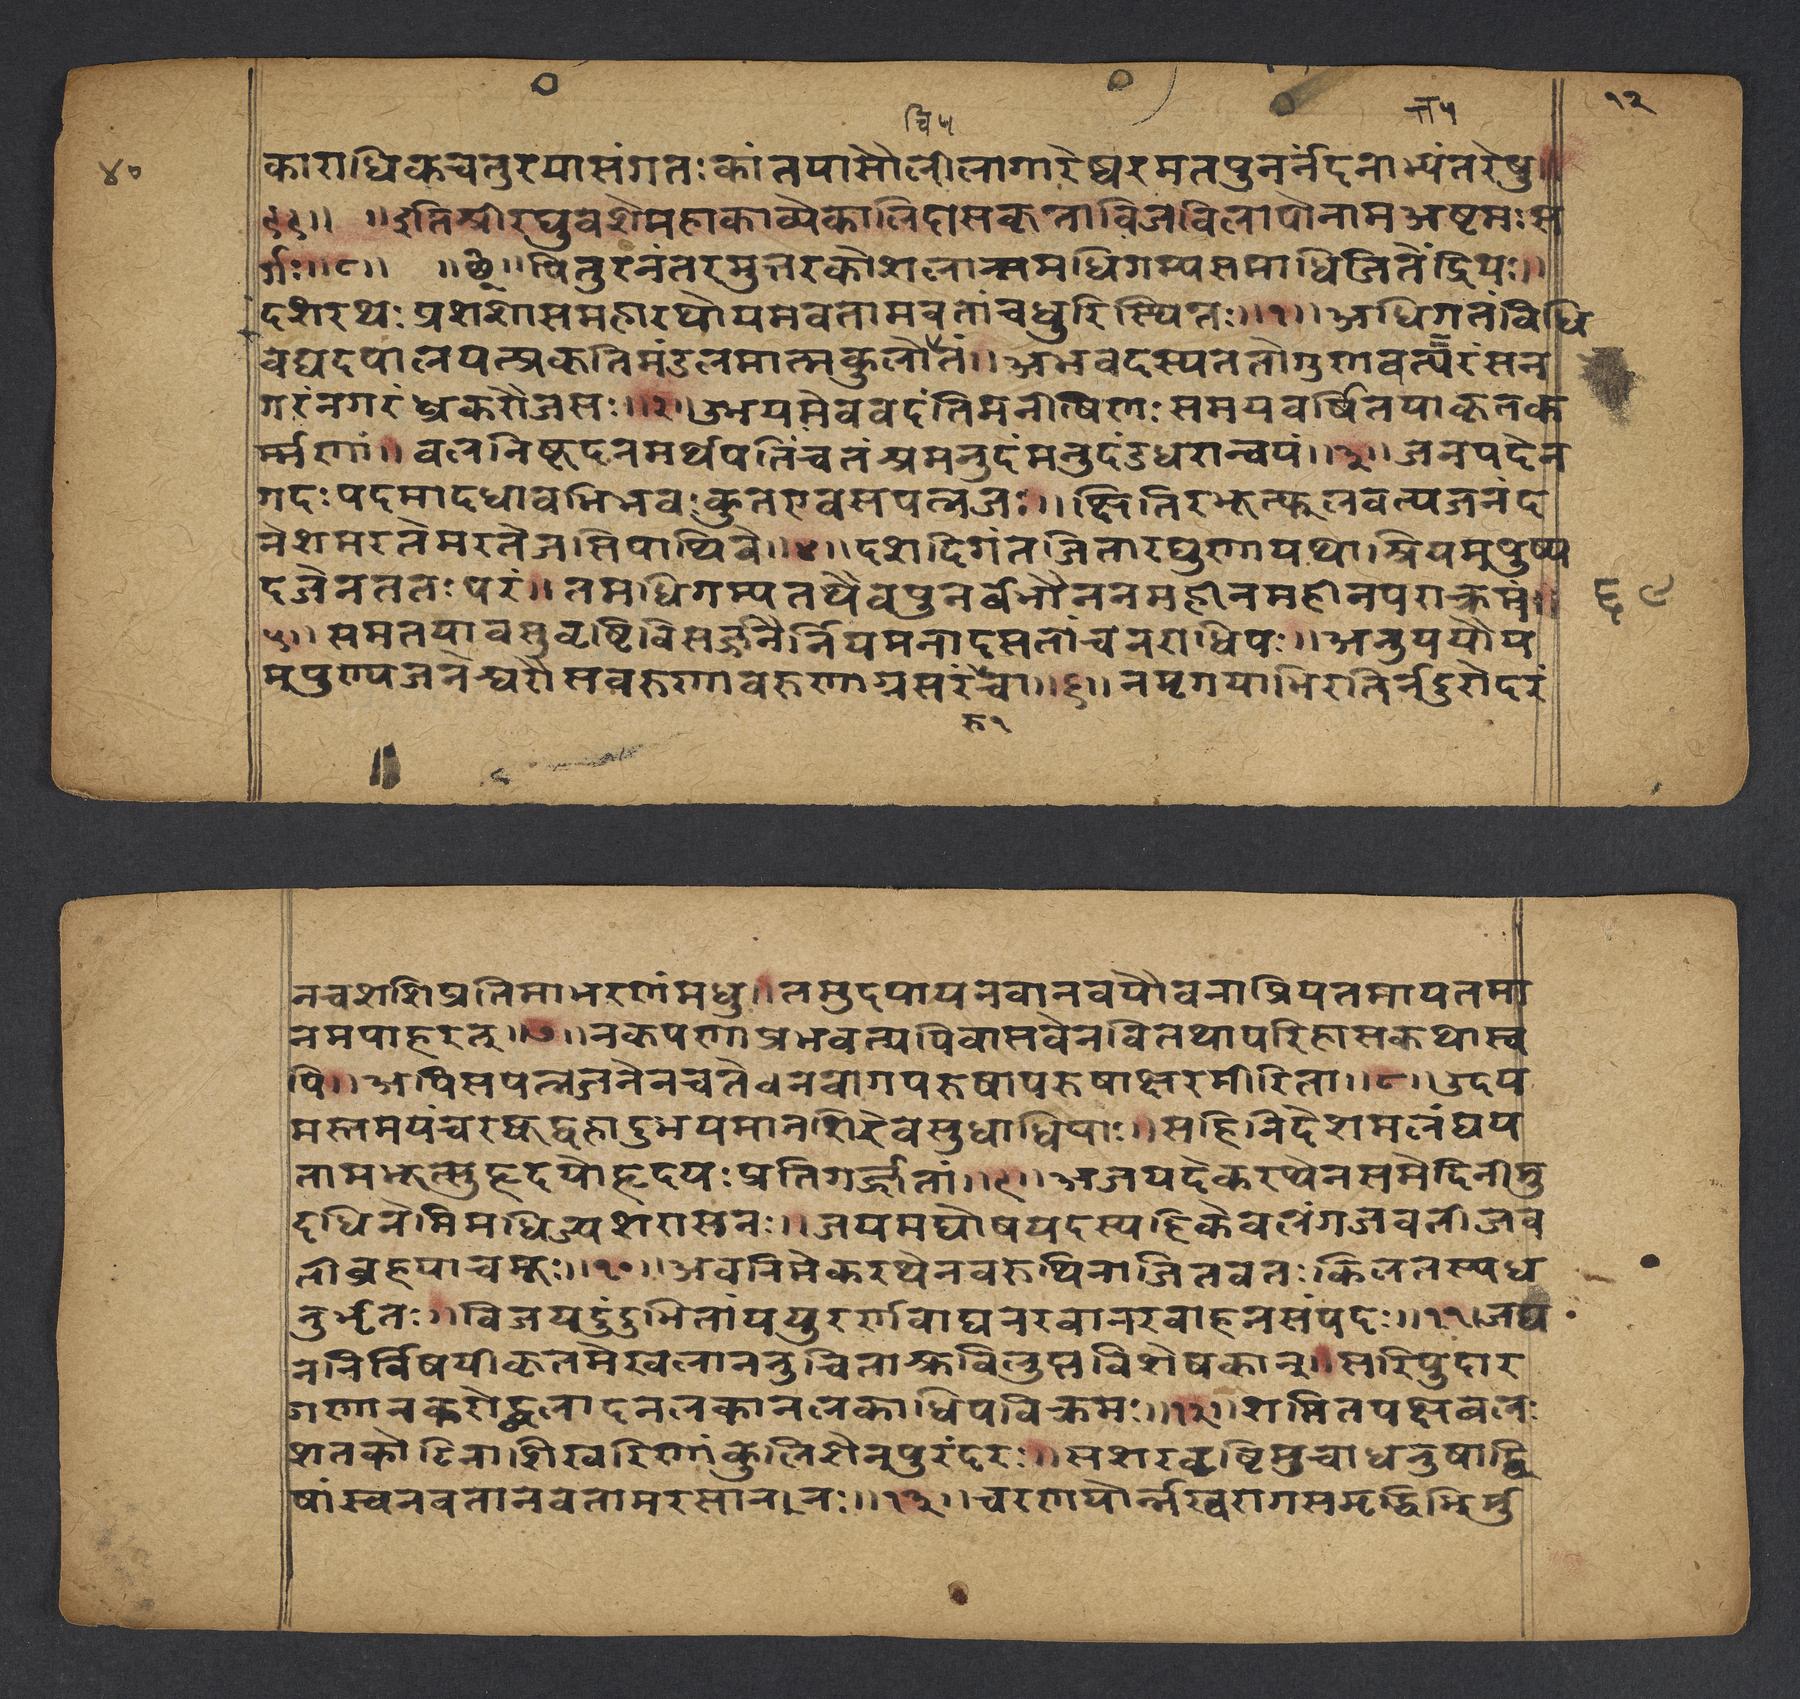 चि५
न५
१२
४०
काराधिकचतुरयासंगतःकांतयासौलीलागारेष्वरमतपुनर्नंदनाभ्यंतरेषु॥
९५॥ ॥इतिश्रीरघुवंशेमहाकाव्येकालिदासकृताविजविलापोनामअष्टमःस
र्गः॥८॥ ॥छ॥पितुरनंतरमुत्तरकोशलान्समधिगम्यसमाधिजितेंद्रियः॥
दशरथःप्रशशासमहारथोयमवतामवतांचधुरिस्थितः॥१॥अधिगतंविधि
वद्यदपालयत्प्रकृतिमंडलमात्मकुलोतं॥अभवदस्यततोगुणवत्परंसन
गरंनगरंध्रकरौजसः॥२॥उभयमेववदंतिमनीषिणःसमयवर्षितयाकृतक
र्म्मणां॥वलनिषूदनमर्थपतिंचतंश्रमनुदंमनुदंडधरान्वयं॥३॥जनपदेन
गदःपदमादधावभिभवःकुतएवसपत्नजः॥क्षितिरभूत्फलवत्यजनंद
नेशमरतेमरतेजसिपार्थिवे॥४॥दशदिगंतजितारघुणायथाश्रियमपुष्य
दजेनततःपरं॥तमधिगम्यतथैवपुनर्बभौननमहीनमहीनपराक्रमं॥
६९
५॥समतयावसुवृष्टिविसर्ज्जनैर्नियमनादसतांचनराधिपः॥अनुययौय
मपुण्यजनेश्वरौसवरुणावरुणाग्रसरंचा॥६॥नमृगयाभिरतिर्नदुरोदरं
रु१
नचशशिप्रतिमाभरणंमधु॥तमुदयायनवानवयौवनाप्रियतमायतमा
नमपाहरत्॥७॥नकृपणाप्रभवत्यपिवासवेनवितथापरिहासकथास्व
पि॥अपिसपत्नजनेनचतेधनवागपरुषापरुषाक्षरमीरिता॥८॥उदय
मस्तमयंचरघूद्वहादुभयमानशिरेवसुधाधिपाः॥सहिनिदेशमलंघय
तामभूत्सुहृदयोहृदयःप्रतिगर्ज्जतां॥९॥अजयदेकरथेनसमेदिनीमु
दधिनेमिमधिज्यशरासनः॥जयमघोषयदस्यहिकेवलंगजवतीजव
तीव्रहयाचमूः॥१०॥अवनिमेकरथेनवरूथिनाजितवतःकिलतस्यध
नुर्भृतः॥विजयदुंदुभितांययुरर्णवाघनरवानरवाहनसंपदः॥११॥जघ
ननिर्विषयीकृतमेखलाननुचिताश्रुविलुप्तविशेषकान्॥सरिपुदार
गणानकरोद्बलादनलकानलकाधिपविक्रमः॥१२॥शमितपक्षबलः
शतकोटिनाशिखरिणांकुलिशेनपुरंदरः॥सशरवृष्टिमुचाधनुषाद्वि
षांस्वनवतानवतामरसाननः॥१३॥चरणयोर्न्नखरागसमृद्धिभिर्मु